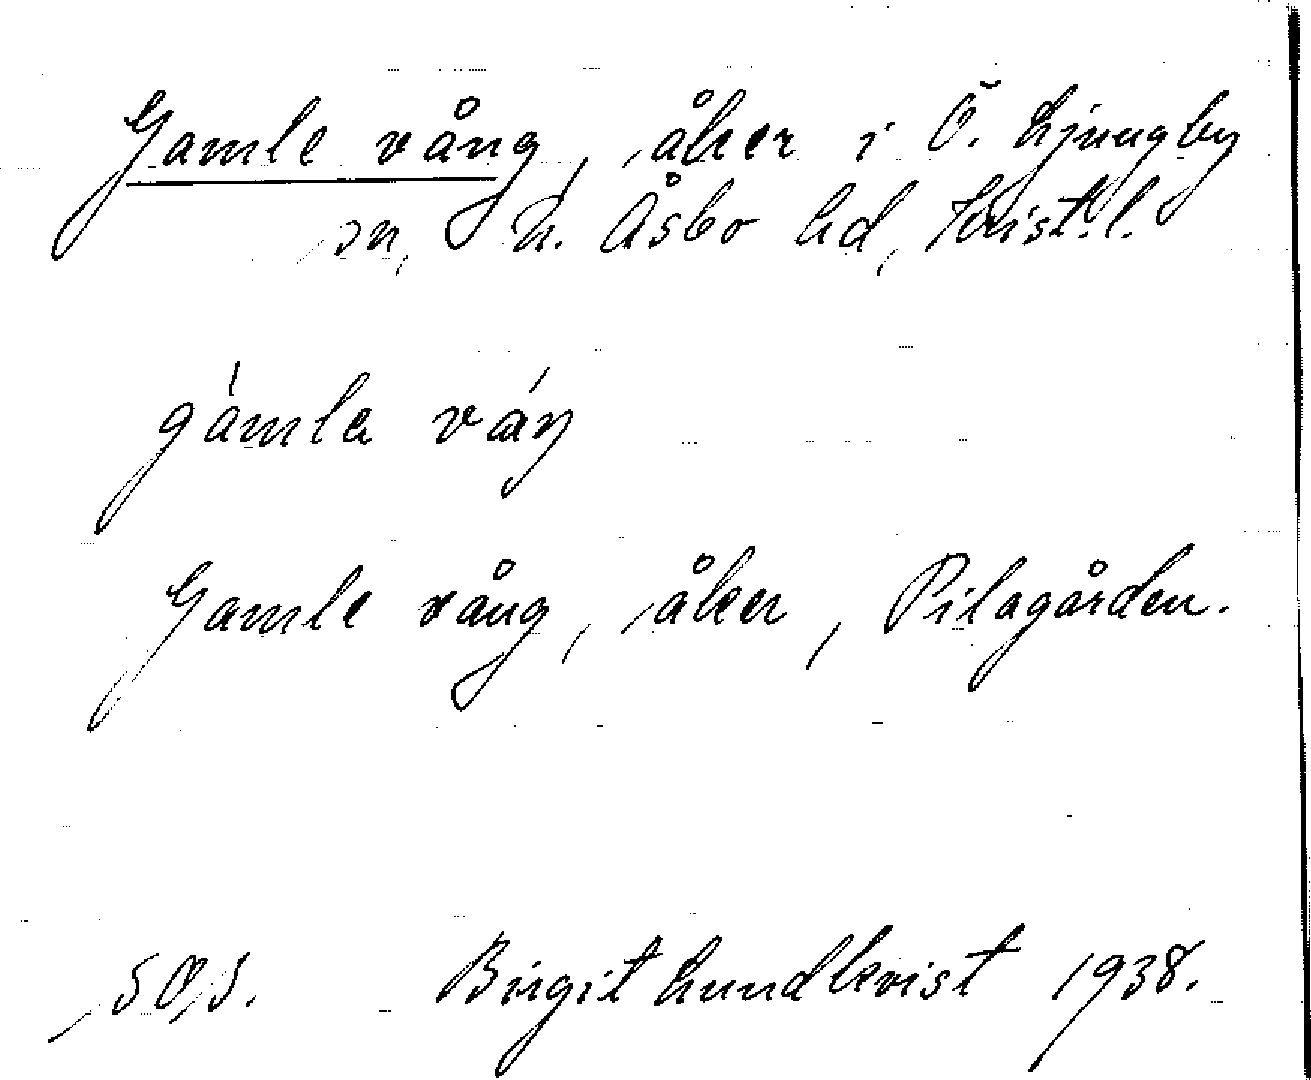 Gamle vång, åker i Ö. Ljungby
sn, N. Åsbo hd, Krist. l.
gámla váŋ
Gamle vång, åker, Pilagården.
Birgit Lundkvist 1938.